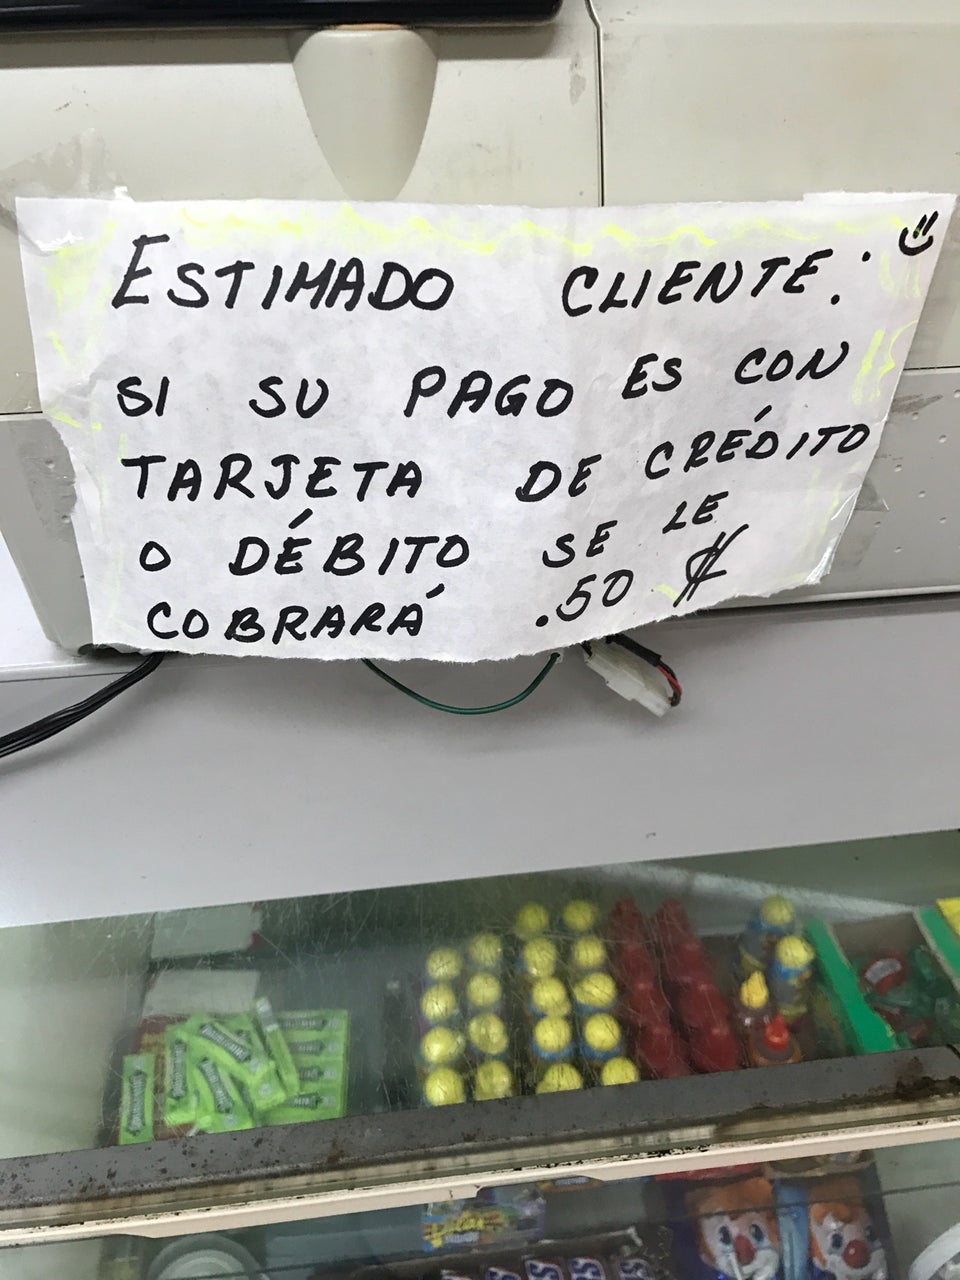 ESTIMADO CLIENTE:
SI SU PAGO ES CON
TARJETA DE CRÉDITO
O DÉBITO SE LE
COBRARÁ .50 ₵